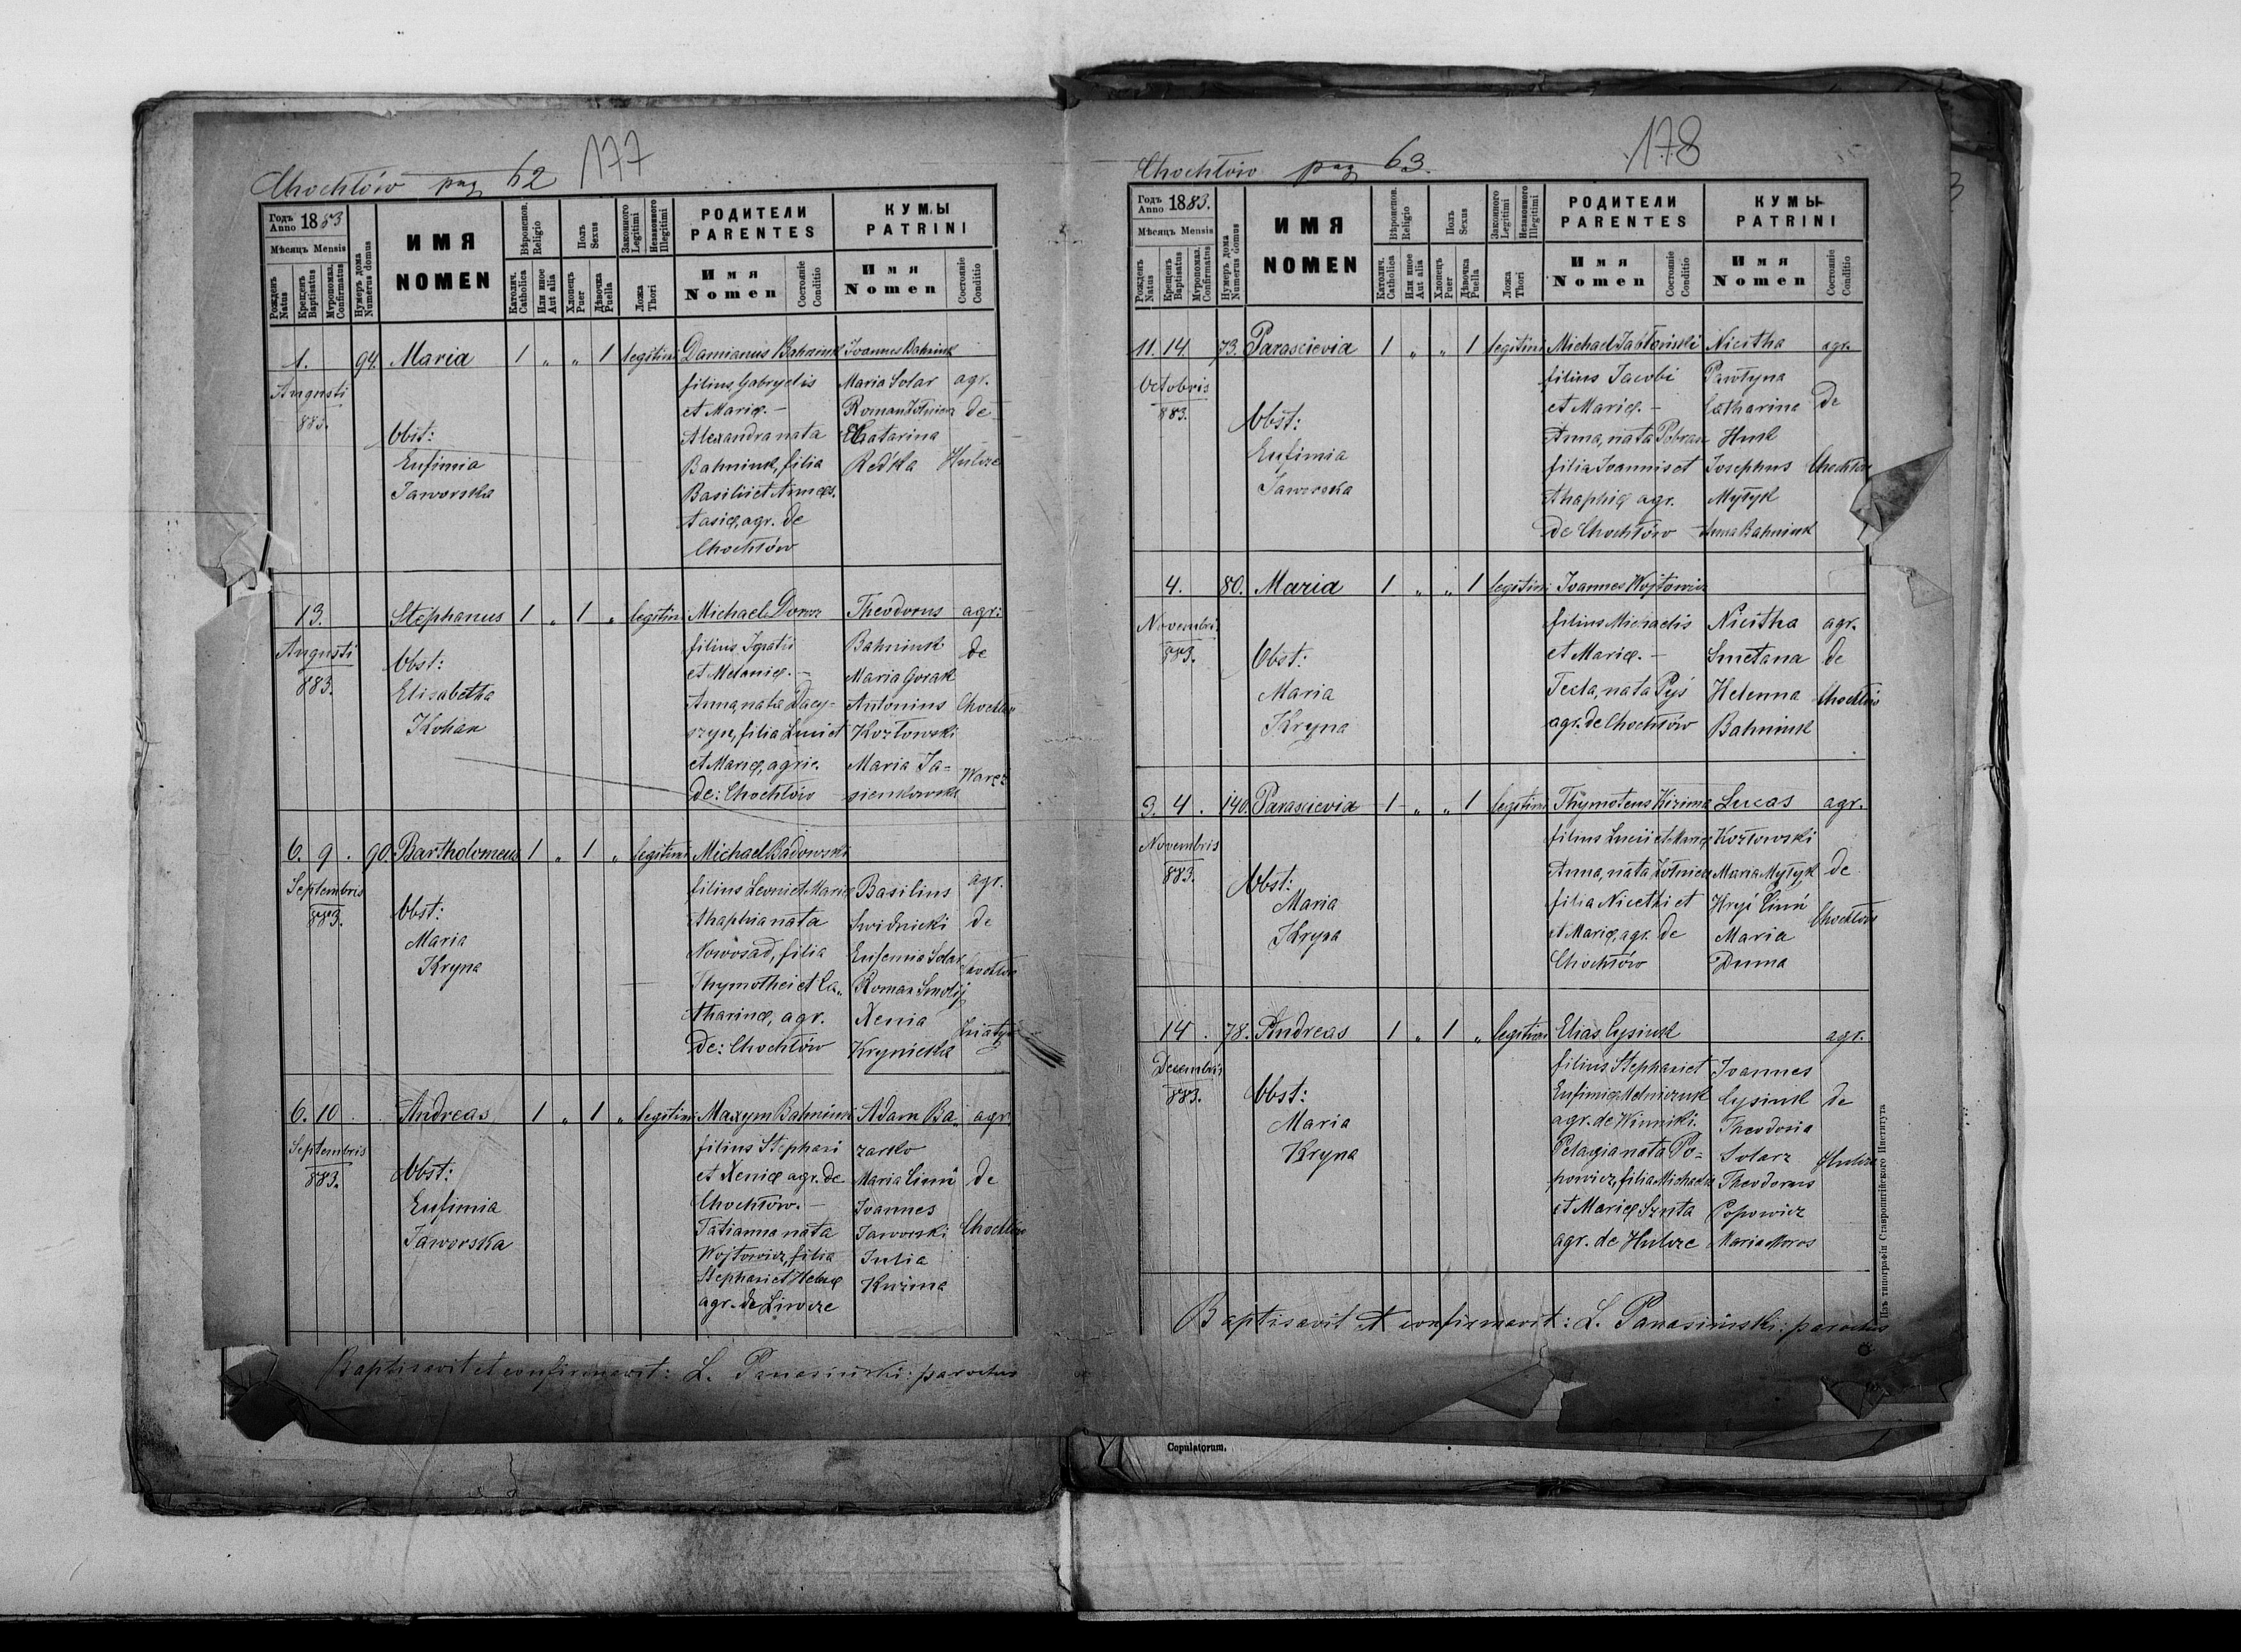 Chochłów pag 62 177
Годъ Anno 1883
Мѣсяцъ Mensis
Рожденъ Natus
Крещенъ Baptisatus
Мѵропомаз. Confirmatus
Нумеръ дома Numerus domus
ИМЯ
NOMEN
Вѣроиспов. Religio
Католич. Catholica
Или иное Aut alia
Полъ Sexus
Хлопецъ Puer
Дѣвочка Puella
Законного Legitimi
Незаконного Illegitimi
Ложа Thori
РОДИТЕЛИ
PARENTES
Имя
Nomen
Состояніе Conditio
КУМЫ
PATRINI
Имя
Nomen
Состояніе Conditio
1. 94. Maria 1 „ „ 1 legitimi Damianus Bahniuk Ioannes Bahniuk
Augusti filius Gabryelis Maria Solar agr.
883. et Mariæ. – Roman de
Obst: Alexandra nata Chatarina
Eufimia Bahniuk, filia Redka Hulcze
Jaworska Basilii et
agr. de
Chochłów
13. Stephanus 1 „ 1 „ legitimi Michael Theodorus agr.
Augusti filius Ignatii Bahniuk de
883. Obst: et Melaniæ. – Maria Gorak
Elisabetha Anna, nata Dacy- Antonius Chochłów
Kohan szyn, filia et Kozłowski
et Mariæ, agric. Maria Ja-
de: Chochłów sienkowska Waręż
6. 9. 90. Bartholomeus 1 „ 1 „ legitimi Michael Badowski
Septembris filius Leonis et Mariæ Basilius agr.
883. Obst: Ahaphia nata Swidnicki de
Maria Nowosad, filia Eufemia Solar Chochłów
Kryna Thymothei et Ca- Roman Smolij
tharinæ, agr. Xenia
de: Chochłów Krynicka
6. 10. Andreas 1 „ 1 „ legitimi Maxym Bahniuk Adam Ba- agr.
Septembris filius Stephani zarko
883. Obst: et Xeniæ agr. de Maria de
Eufimia Chochłów. – Joannes
Jaworska Tatianna nata Jaworski Chochłów
Wojtowicz, filia Julia
Stephani et Helenæ Kuzima
agr. de Liwcze
Baptisavit et confirmavit: L. Panasiński: parochus
Chochłów pag 63. 178
Годъ Anno 1883.
Мѣсяцъ Mensis
Рожденъ Natus
Крещенъ Baptisatus
Мѵропомаз. Confirmatus
Нумеръ дома Numerus domus
ИМЯ
NOMEN
Вѣроиспов. Religio
Католич. Catholica
Или иное Aut alia
Полъ Sexus
Хлопецъ Puer
Дѣвочка Puella
Законного Legitimi
Незаконного Illegitimi
Ложа Thori
РОДИТЕЛИ
PARENTES
Имя
Nomen
Состояніе Conditio
КУМЫ
PATRINI
Имя
Nomen
Состояніе Conditio
11. 14. 73. Parascievia 1 „ „ 1 legitimi Michael Jabłoński Nicitha agr.
Octobris filius Jacobi Pawłyna
883. Obst: et Mariæ. – Catharina de
Eufimia Anna, nata Huk
Jaworska filia Ioannis et Josephus Chochłów
Ahaphiæ agr. Mytyk
de Chochłów Anna Bahniuk
4. 80. Maria 1 „ „ 1 legitimi Ioannes Wojtowicz
Novembris filius Michaelis Nicitha agr.
883. Obst: et Mariæ. – Smetana de
Maria Tecla, nata Pyś Helenna Chochłów
Kryna agr. de Chochłów Bahniuk
3. 4. 140. Parascievia 1 „ „ 1 legitimi Thymoteus Lucas agr.
Novembris filius et Mariæ Kozłowski
883. Obst: Anna, nata Maria Mytyk de
Maria filia Nicethi et Chochłów
Kryna et Mariæ, agr. de Maria
Chochłów Duma
14. 78. Andreas 1 „ 1 „ legitimi Elias Cysiuk agr.
Decembris filius Stephani et Joannes
883. Obst: Eufimiæ Melniczuk Cysiuk de
Maria agr. de Winniki. Theodosia
Kryna Pelagia nata Po- Solarz Hulcze
powicz, filia Michaelis Theodorus
et Mariæ Szuta Popowicz
agr. de Hulcze Maria Moros
Baptisavit et confirmavit: L. Panasiński: parochus
Изъ типографіи Ставропигійского Института
Copulatorum.